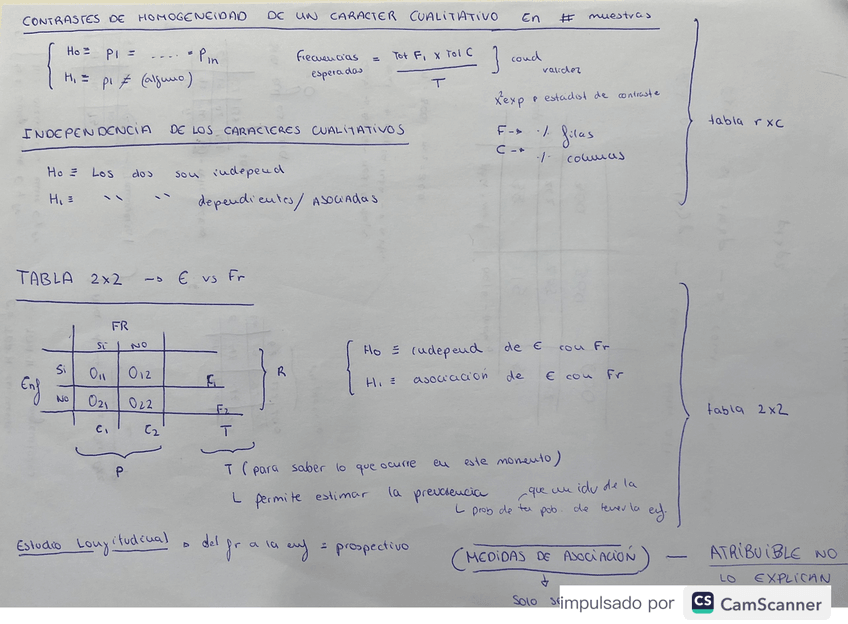 CONTRASTES DE HOMOGENEIDAD DE UN CARACTER CUALITATIVO En # muestras
H0 ≡ p1 = ..... = Pm
H1 ≡ p1 ≠ (alguno)
frecuencias esperadas = Tot F1 x Tol C / T ] cond validez
x²exp → estadist de contraste
F → % filas
C → % columnas
tabla r x c
INDEPENDENCIA DE LOS CARACTERES CUALITATIVOS
H0 ≡ Los dos son independ
H1 ≡ `` `` dependientes / ASOCIADAS
TABLA 2x2 → € vs Fr
FR
Si NO
Enf Si O11 O12 F1
NO O21 O22 F2
C1 C2 T
R
P
H0 ≡ independ de € con Fr
H1 ≡ asociación de € con Fr
tabla 2x2
T (para saber lo que ocurre en este momento)
L permite estimar la prevalencia que un idv de la
L prob de tu pob. de tener la enf.
Estudio Longitudinal → del fr a la enf = prospectivo
(MEDIDAS DE ASOCIACIÓN) — ATRIBUIBLE NO
LO EXPLICAN
solo
impulsado por CS CamScanner